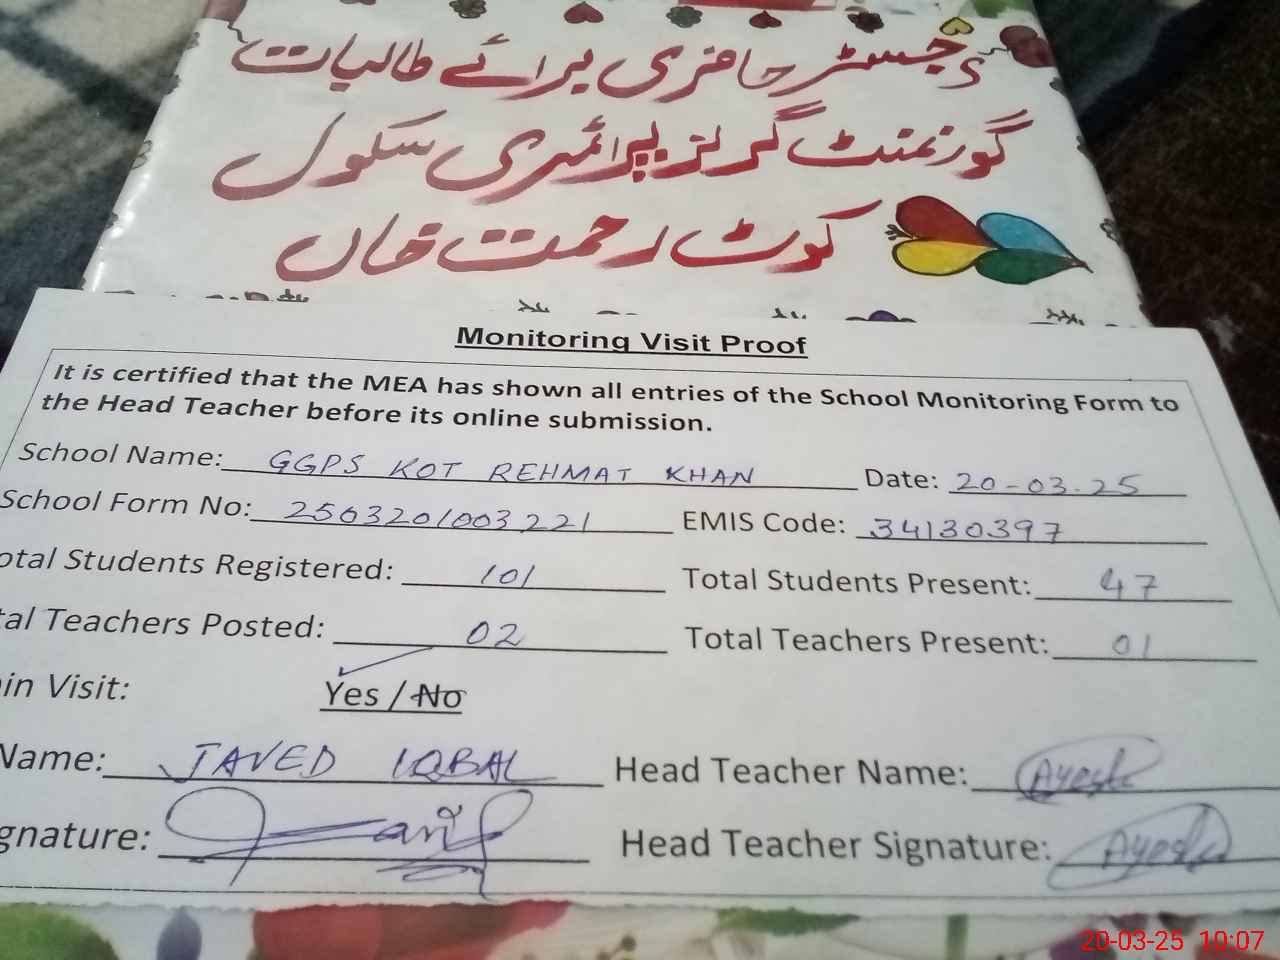 رجسٹر حاضری برائے طالبات
گورنمنٹ گرلز پرائمری سکول
کوٹ رحمت خاں
Monitoring Visit Proof
It is certified that the MEA has shown all entries of the School Monitoring Form to
the Head Teacher before its online submission.
School Name: GGPS KOT REHMAT KHAN Date: 20-03-25
School Form No: 2503201003221 EMIS Code: 34130397
otal Students Registered: 101 Total Students Present: 47
tal Teachers Posted: 02 Total Teachers Present: 01
in Visit: Yes / No
Name: JAVED IQBAL Head Teacher Name: Ayesha
gnature: Head Teacher Signature: Ayesha
20-03-25 10:07